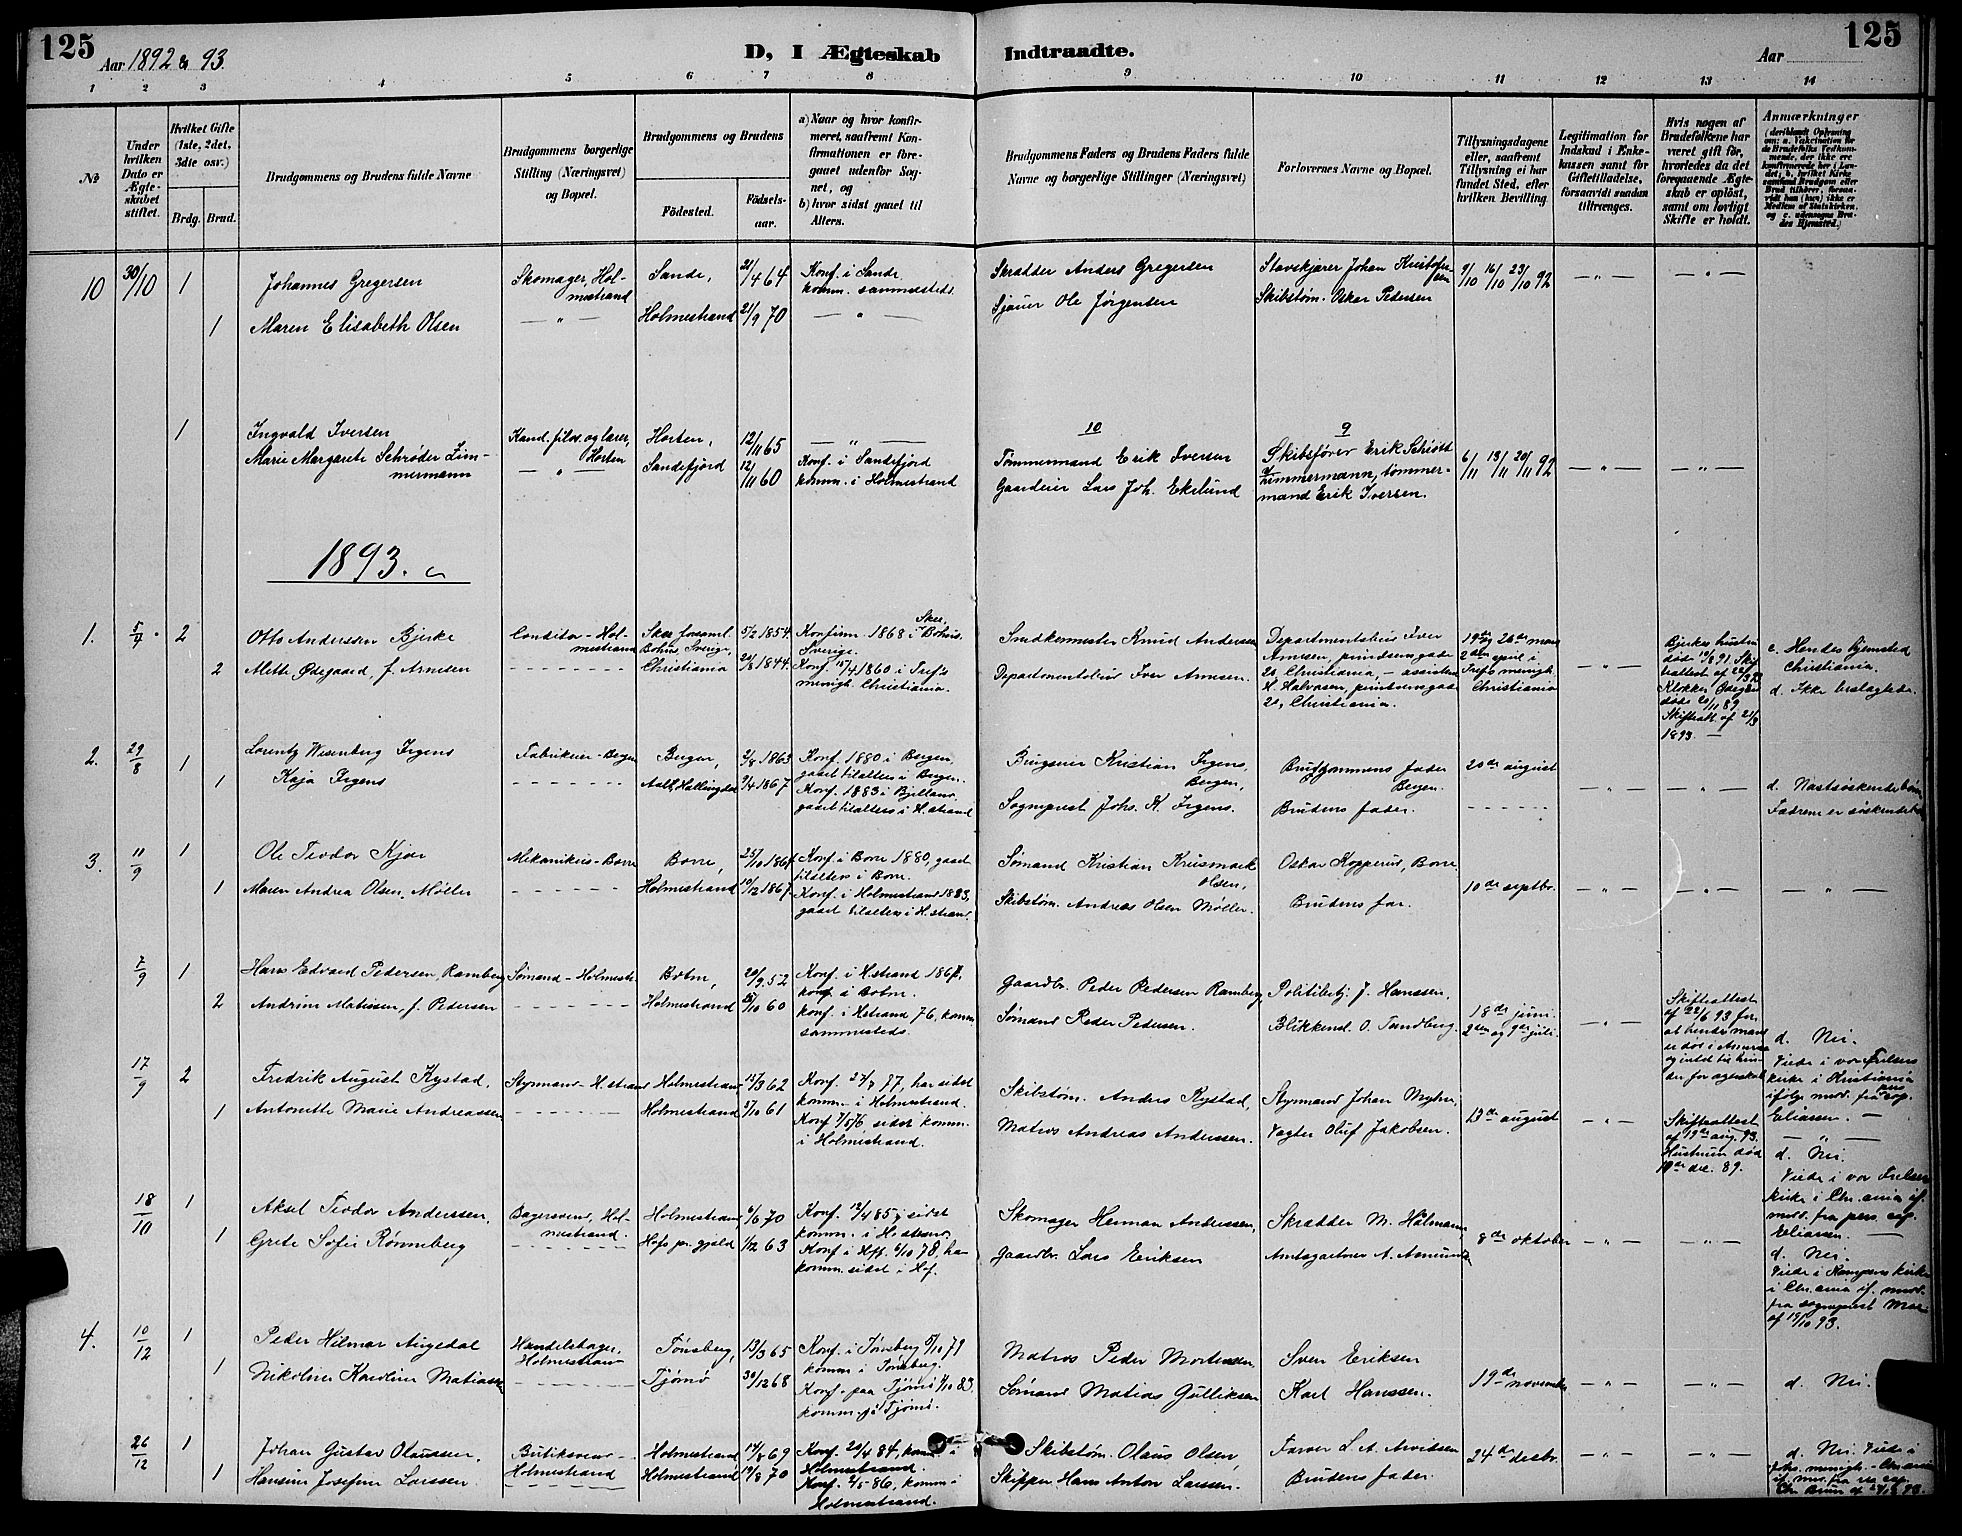 125
Aar 1892 & 93.
D, I Ægteskab Indtraadte.
Aar
125
1 2 3 4 5 6 7 8 9 10 11 12 13 14
№
Under hvilken Dato er Ægteskabet stiftet.
Hvilket Gifte (1ste, 2det, 3die osv.)
Brdg. Brud.
Brudgommens og Brudens fulde Navne
Brudgommens borgerlige Stilling (Næringsvei) og Bopæl.
Brudgommens og Brudens
Födested.
Födselsaar.
a) Naar og hvor konfirmeret, saafremt Konfirmationen er foregaaet udenfor Sognet, og
b) hvor sidst gaaet til Alters.
Brudgommens Faders og Brudens Faders fulde Navne og borgerlige Stillinger (Næringsvei)
Forlovernes Navne og Bopæl.
Tillysningsdagene eller, saafremt Tillysning ei har fundet Sted, efter hvilken Bevilling.
Legitimation for Indskud i Enkekassen samt for Giftetilladelse, forsaavidt saadan tiltrænges.
Hvis nogen af Brudefolkene har været gift för, hvorledes da det foregaaende Ægteskab er oplöst, samt om lovligt Skifte er holdt.
Anmærkninger
10 30/10 1 Johannes Gregersen Skomager, Holmestrand Sande, 21/4 64 Konf. i Sande komm. sammesteds. Skrædder Anders Gregersen Stavskjærer Johan Kristofersen 9/10 16/10 23/10 92 — " — — " —
1 Maren Elisabeth Olsen — " — Holmestrand 21/9 70 — " — Sjauer Ole Jørgensen Skibstøm. Oskar Pedersen
1 Ingvald Iversen Kand. filos. og lærer, Horten Horten, 12/11 65 — " — 10 Tømmermand Erik Iversen 9 Skibsfører Erik Schiött 6/11 13/11 20/11 92 — " — — " —
Marie Margarete Schrøder Zimmermann — " — Sandefjord 12/11 60 Konf. i Sandefjord komm. i Holmestrand Gaardeier Lars Joh. Ekelund Zimmermann, tømmermand Erik Iversen.
1893.
1. 5/4 2 Otto Anderssøn Bjerke Conditor - Holmestrand Skee forsaml. Bohus, Sverige, 5/2 1854. Konfirm. 1868 i Skee, Bohus, Sverige. Snedkermester Knud Andersen Departementsbud Iver Arnesen, prindsensgade 20, Christiania, — assistent H. Halvorsen, prindsensgade 20, Christiania. 19de og 26de mars 2den april i Trefs menigh. Christiania — " — Bjerkes hustru døde 19/8 91. Skifteattest af 22/3 93 Klokker Ødegaard døde 20/11 89. Skifteatt. af 21/3 1893. — c. Hendes hjemsted Christiania. d. Ikke beslægtede.
2 Alette Ødegaard, f. Arnesen Christiania 21/8 1844. Konf. 15/4 1860 i Trefs menigh. Christiania. Departementsbud Iver Arnesen.
2. 29/8 1 Lorentz Wesenberg Irgens Fabrikeier - Bergen Bergen, 2/8 1863 Konf. 1880 i Bergen, gaaet tilalters i Bergen. Kristian Irgens, Bergen, Brudgommens fader Bergen. 20de august — " — — " — d. Næstsøskendebørn
1 Kaja Irgens Aal, Hallingdal 2/4 1867 Konf. 1883 i Bjelland, gaaet tilalters i H.strand Sogneprest Johs. K. Irgens. Brudens fader. Fædrene er søskendebørn
3. 11/9 1 Ole Teodor Kjær Mekanikus - Borre Borre, 25/10 1864 Konf. i Borre 1880, gaaet tilalters i Borre. Sømand Kristian Krusmark Olsen, Oskar Kopperud, Borre 10de septbr. — " — — " — — " —
1 Maren Andrea Olsen, Møller Holmestrand 10/12 1867 Konf. i Holmestrand 1883, gaaet tilalters i H.strand. Skibstøm. Andreas Olsen Møller. Brudens far.
7/9 1 Hans Edvard Pedersen, Ramberg Sømand - Holmestr. Botne, 20/9 52 Konf. i H.strand 1867, konf. i Botne. Gaardbr. Peder Pedersen Ramberg Politibetj. J. Hanssen, 18de juni. 2den og 9de juli. — " — Skifteattest af 22/6 93 for, at hendes mand er død i Amerika d. Nei.
2 Andrine Matisen, f. Pedersen Holmestrand 25/10 60 konf. i H.strand 76, komm. sammesteds. Sømand Peder Pedersen. Blikkensl. O. Tandberg. Viede i vor Frelsers kirke i Kristiania ifølge med. fra pers. cap. Eliassen. —
17/9 2 Fredrik August Rystad, Styrmand - H.strand Holmestrand 15/3 62 Konf. 27/7 77, har sidst komm. i Holmestrand. Skibstøm. Anders Rystad, Styrmand Johan Myhre, 13de august — " — Skifteattest af 19de aug. 93. Hustruen død 19de dec. 89. — " — d. Nei.
1 Antonette Marie Andreassen Holmestrand 5/10 61 Konf 7/5 76, sidst komm. i Holmestrand. Matros Andreas Anderssen. Vagter Oluf Jakobsen. Viede i vor Frelsers kirke i Chr.ania if. med. fra pers. cap. Eliassen. —
18/10 1 Aksel Teodor Anderssen, Bagersvend, Holmestrand. Holmestrand 6/6 70 Konf. 12/4 85, sidst komm. i H.strand. Skomager Herman Anderssen, Skrædder M. Holmann, 8de oktober — " — — " — d. Nei.
1 Grete Sofie Rønneberg Hofs pr.gjeld 1/12 63 Konf. i Hof 6/10 78, har komm. sidst i Hof. Gaardbr. Lars Eriksen Amtsgartner A. Amunds Viede i Kampens kirke i Chr.ania if. med. fra sogneprest af 19/10 93.
4. 10/12 1 Peder Hilmar Augedal Handelsbager, Holmestrand Tönsberg, 13/3 65 Konf. i Tönsberg 5/10 79 komm. i Tönsberg. Matros Peder Mortensen Sven Eriksen 19de november — " — — " — d. Nei.
1 Nikoline Karoline Matiassen Tjømø 30/12 68 Konf. paa Tjømø 7/10 83. komm. på Tjømø. Sømand Matias Gulliksen Karl Hanssen.
26/12 1 Johan Gustav Olaussen, Butiksvend - Holmestrand Holmestrand 14/8 69 Konf. 20/4 84, komm. i Holmestrand. Skibstøm. Olaus Olsen Farver L. A. Arvidsen 24de decbr. — " — — " — d. Nei. Viede i Johs. menigh. - Chr.ania
1 Hansine Josefine Larssen Holmestrand 19/8 70 Konf. 2/5 86, komm. i Holmestrand. Skipper Hans Anton Larssen. Brudens fader.